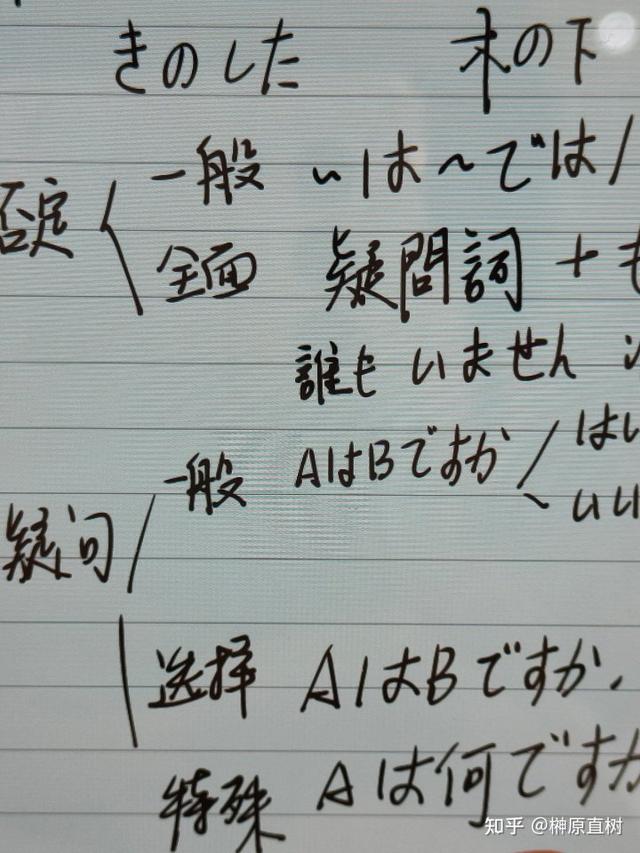 きのした 木の下
否定 一般 〜は〜では/
全面 疑問詞 + も
誰も いません
一般 AはBですか / はい
疑问 いい
选择 AはBですか、
特殊 Aは何ですか
知乎 @榊原直树